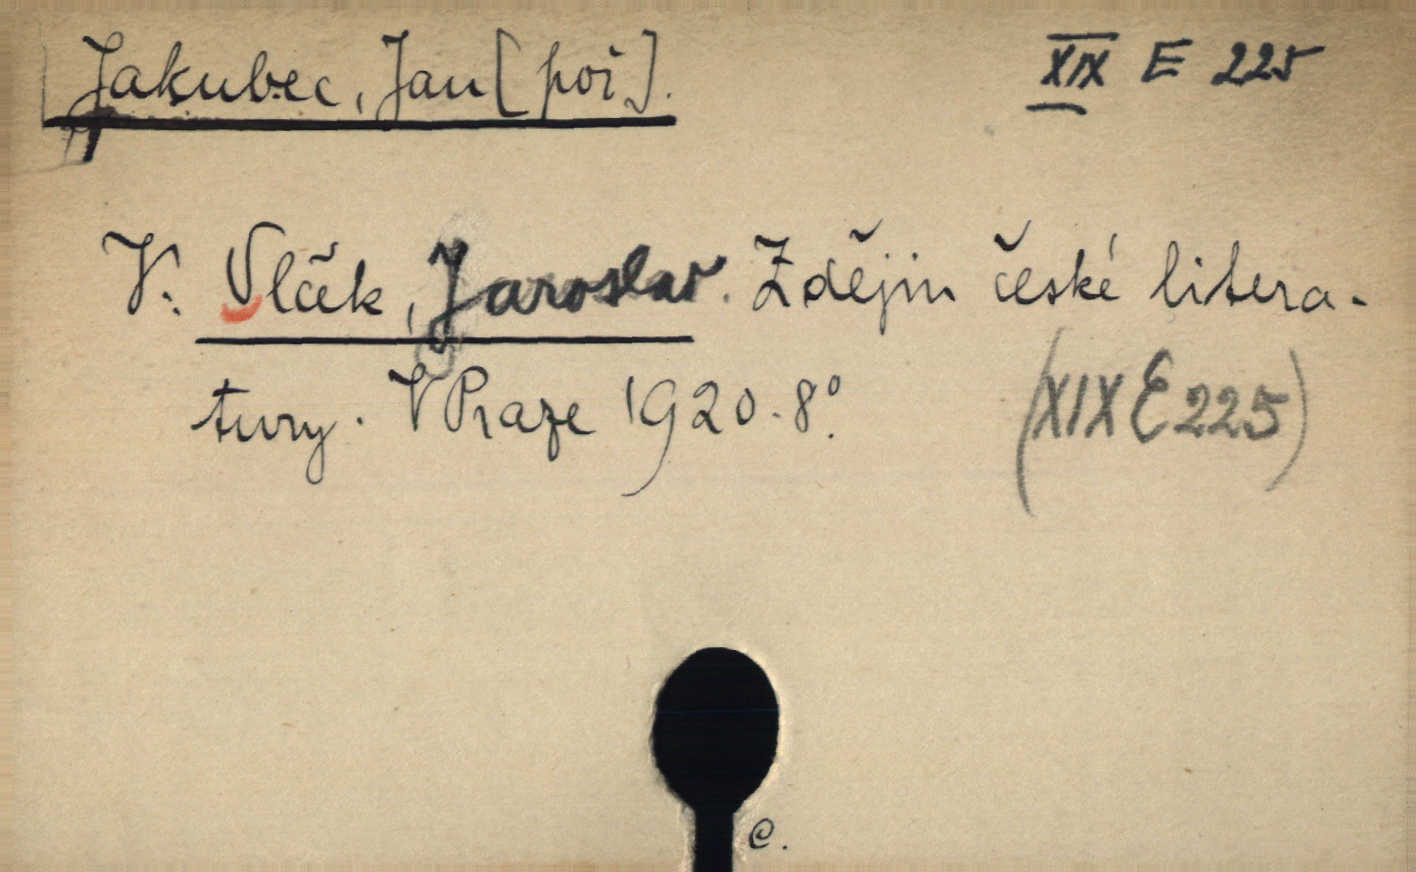 Jakubec, Jan [poř].
XIX E 225
V. Vlček, Jaroslav. Z dějin české litera-
tury. V Praze 1920. 8°.
(XIX E 225)
C.